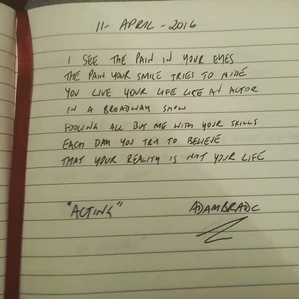 11- APRIL - 2016
I SEE THE PAIN IN YOUR EYES
THE PAIN YOUR SMILE TRIES TO HIDE
YOU LIVE YOUR LIFE LIKE AN ACTOR
IN A BROADWAY SHOW
FOOLING ALL BUT ME WITH YOUR SKILLS
EACH DAY YOU TRY TO BELIEVE
THAT YOUR REALITY IS NOT YOUR LIFE
"ACTING" ADAMBRADC